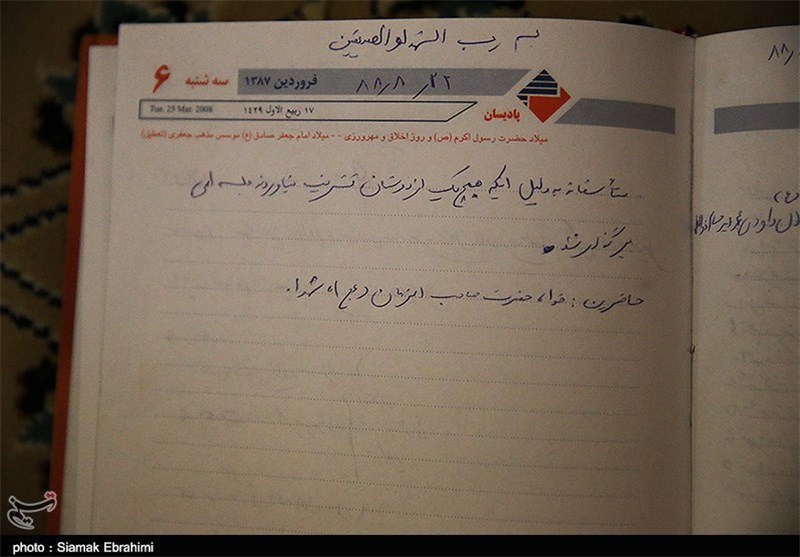 بسم رب الشهدا والصدیقین
۶ سه شنبه
فروردین ۱۳۸۷
۸۸/۸/۲۲
پادیسان
Tue. 25 Mar. 2008
۱۷ ربیع الاول ۱۴۲۹
میلاد حضرت رسول اکرم (ص) و روز اخلاق و مهرورزی - - میلاد امام جعفر صادق (ع) موسس مذهب جعفری (تعطیل)
متأسفانه به دلیل اینکه هیچیک از دوستان تشریف نیاوردند جلسه ای
برگزار نشد
حاضرین : خدا، حضرت صاحب الزمان (عج)، شهدا.
۸۸/
تسنیم
photo : Siamak Ebrahimi